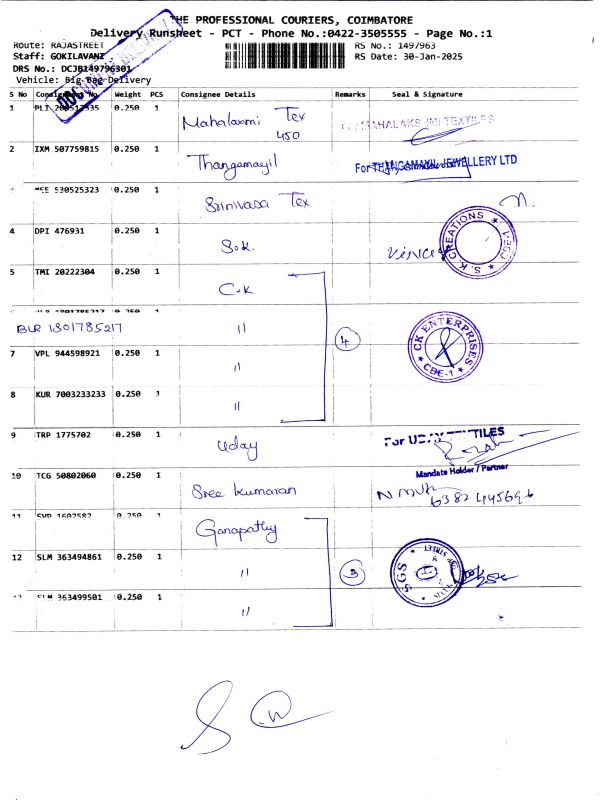 THE PROFESSIONAL COURIERS, COIMBATORE
Delivery Runsheet - PCT - Phone No.:0422-3505555 - Page No.:1
Route: RAJASTREET
RS No.: 1497963
Staff: GOKILAVANI
RS Date: 30-Jan-2025
DRS No.: DCJB149796301
Vehicle: Big Bag Delivery
S No Consignment No. Weight PCS Consignee Details Remarks Seal & Signature
1 PLI 0.250 1 Mahalaxmi Tex
450
For MAHALAKSHMI TEXTILES
2 IXM 507759815 0.250 1 Thangamayil
For THANGAMAYIL JEWELLERY LTD
530525323 0.250 1 Srinivasa Tex
4 DPI 476931 0.250 1 S.K.
S.K. CREATIONS
5 TMI 20222304 0.250 1 C.K
BLR 1301785217 "
4
CK ENTERPRISES
CBE-1
7 VPL 944598921 0.250 1 "
8 KUR 7003233233 0.250 1 "
9 TRP 1775702 0.250 1 Uday
For UDAY TEXTILES
Mandate Holder / Partner
10 TCG 50802060 0.250 1 Sree Kumaran
11 SVP 1602582 0.250 1 Ganapathy
12 SLM 363494861 0.250 1 "
3
SGS
SLM 363499501 0.250 1 "